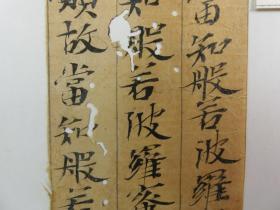 當知般若波羅
知般若波羅蜜
故當知般若